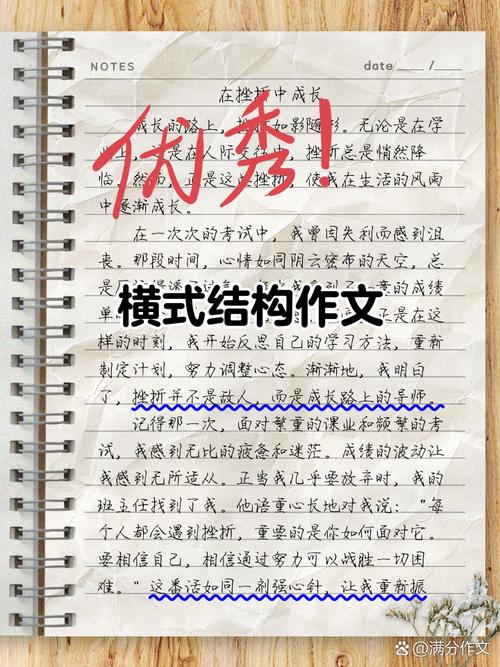 NOTES
date ____ / ____
在挫折中成长
优秀！
成长的路上，挫折如影随形。无论是在学
业上，是在人际交往中，挫折总是悄然降
临。然而，正是这些挫折，使我在生活的风雨
中逐渐成长。
在一次次的考试中，我曾因失利而感到沮
丧。那段时间，心情如同阴云密布的天空，总
是的成绩
横式结构作文
单正是在这
样的时刻，我开始反思自己的学习方法，重新
制定计划，努力调整心态。渐渐地，我明白
了，挫折并不是敌人，而是成长路上的导师。
记得那一次，面对繁重的课业和频繁的考
试，我感到无比的疲惫和迷茫。成绩的波动让
我感到无所适从。正当我几乎要放弃时，我的
班主任找到了我。他语重心长地对我说："每
个人都会遇到挫折，重要的是你如何面对它。
要相信自己，相信通过努力可以战胜一切困
难。"这番话如同一剂强心针，让我重新振
@满分作文